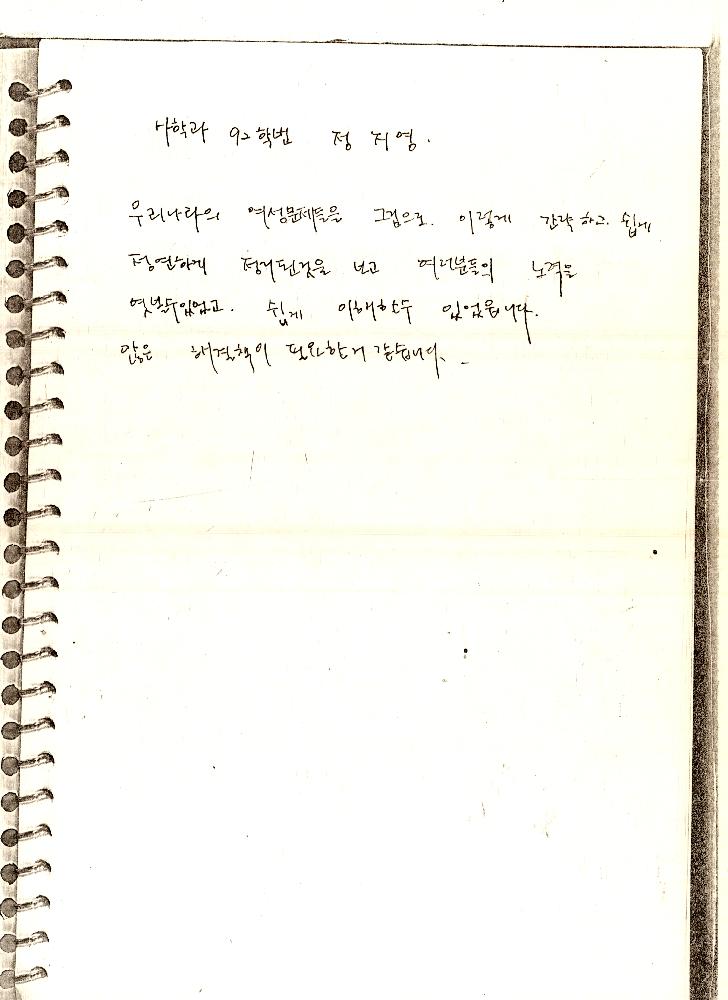 사학과 92학번 정 지영.
우리나라의 여성문제들을 그림으로. 이렇게 간략하고. 쉽게
정연하게 정리된것을 보고 여러분들의 노력을
엿볼수있었고. 쉽게 이해할수 있었읍니다.
많은 해결책이 필요한거 같습니다.